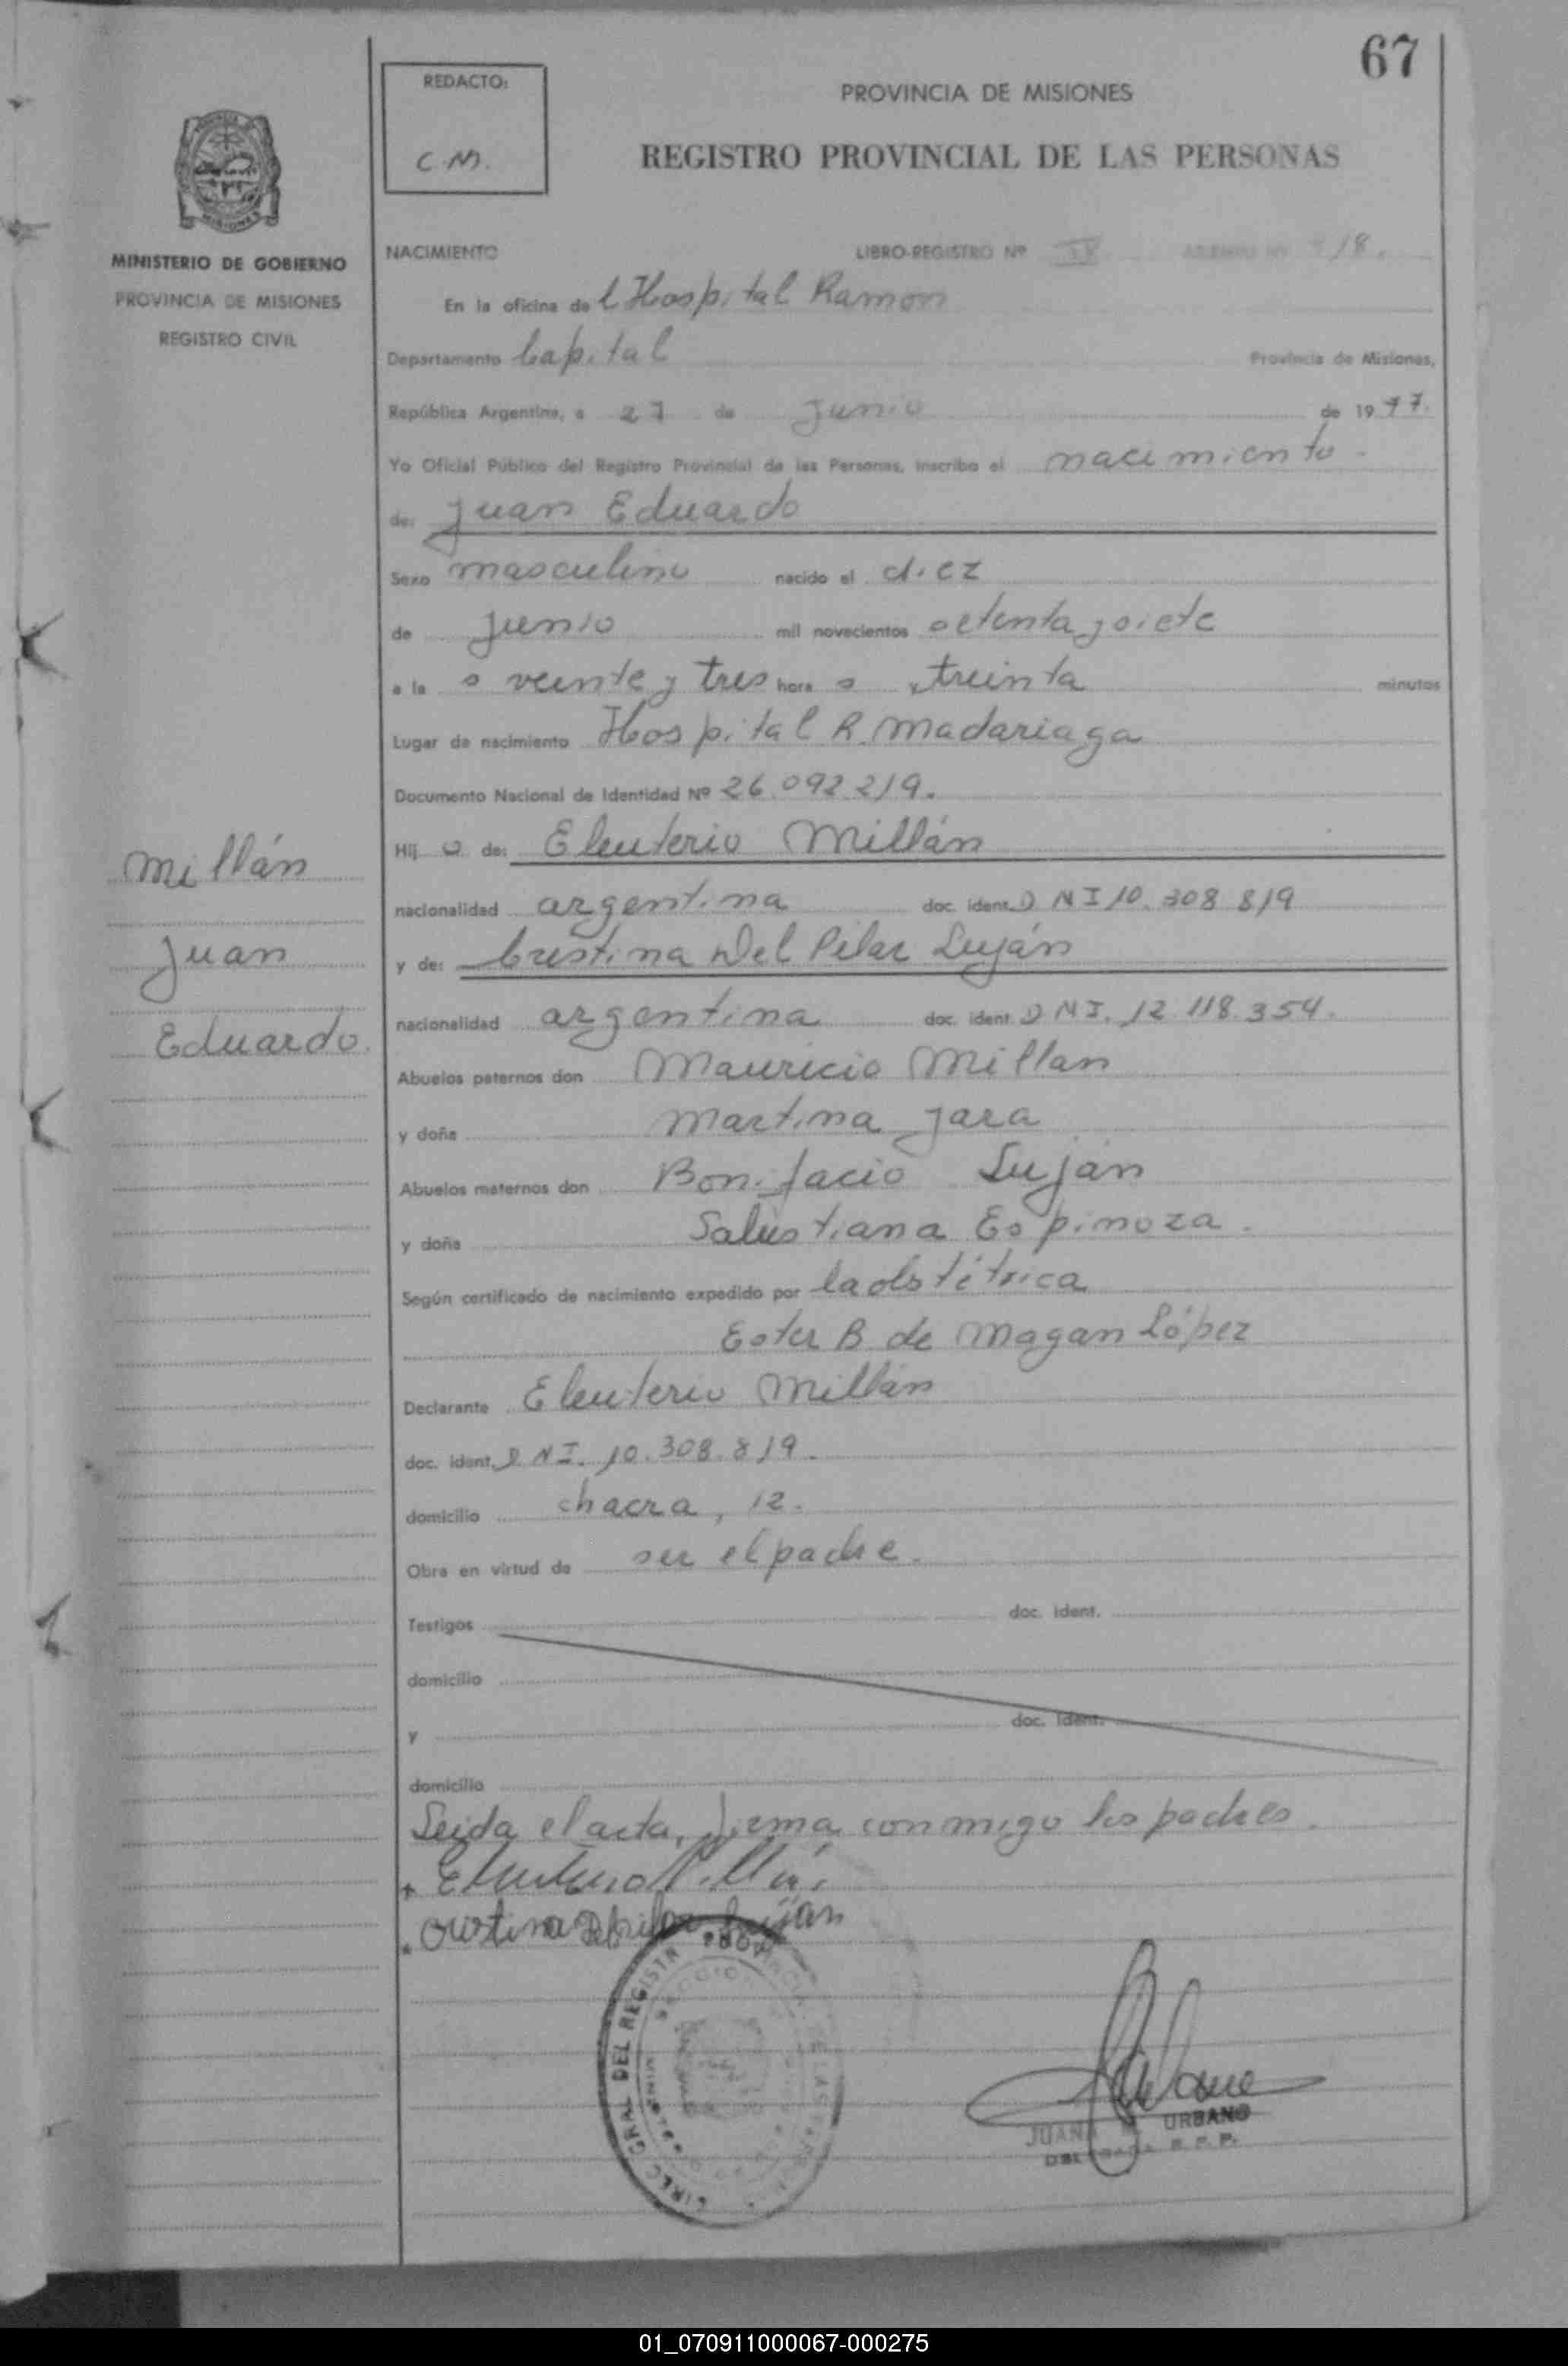 67
REDACTO:
C.M.
PROVINCIA DE MISIONES
REGISTRO PROVINCIAL DE LAS PERSONAS
MINISTERIO DE GOBIERNO
PROVINCIA DE MISIONES
REGISTRO CIVIL
NACIMIENTO LIBRO-REGISTRO Nº
En la oficina de l Hospital Ramon
Departamento Capital Provincia de Misiones,
República Argentina, a 27 de Junio de 1977.
Yo Oficial Público del Registro Provincial de las Personas, inscribo el nacimiento.
de: Juan Eduardo
Sexo masculino nacido el diez
de Junio mil novecientos setenta y siete
a la s veinte y tres hora s y treinta minutos
Lugar de nacimiento Hospital R. Madariaga
Documento Nacional de Identidad Nº 26.092.219.
Hij o de: Eleuterio Millán
nacionalidad argentina doc. ident. D N I 10.308.819
y de: Cristina Del Pilar Luján
nacionalidad argentina doc. ident. D N I. 12.118.354.
Abuelos paternos don Mauricio Millan
y doña Martina Jara
Abuelos maternos don Bonifacio Luján
y doña Salustiana Espinoza.
Según certificado de nacimiento expedido por la obstétrica
Ester B de Magan López
Declarante Eleuterio Millán
doc. ident. D N I. 10.308.819.
domicilio chacra, 12.
Obra en virtud de ser el padre.
Testigos doc. ident.
domicilio
y doc. ident.
domicilio
Leida el acta, firma conmigo los padres.
Eleuterio Millán
Cristina Del Pilar Luján
Millán
Juan
Eduardo.
DIREC. GRAL. DEL REGISTR
JUANA URBANO
01_070911000067-000275